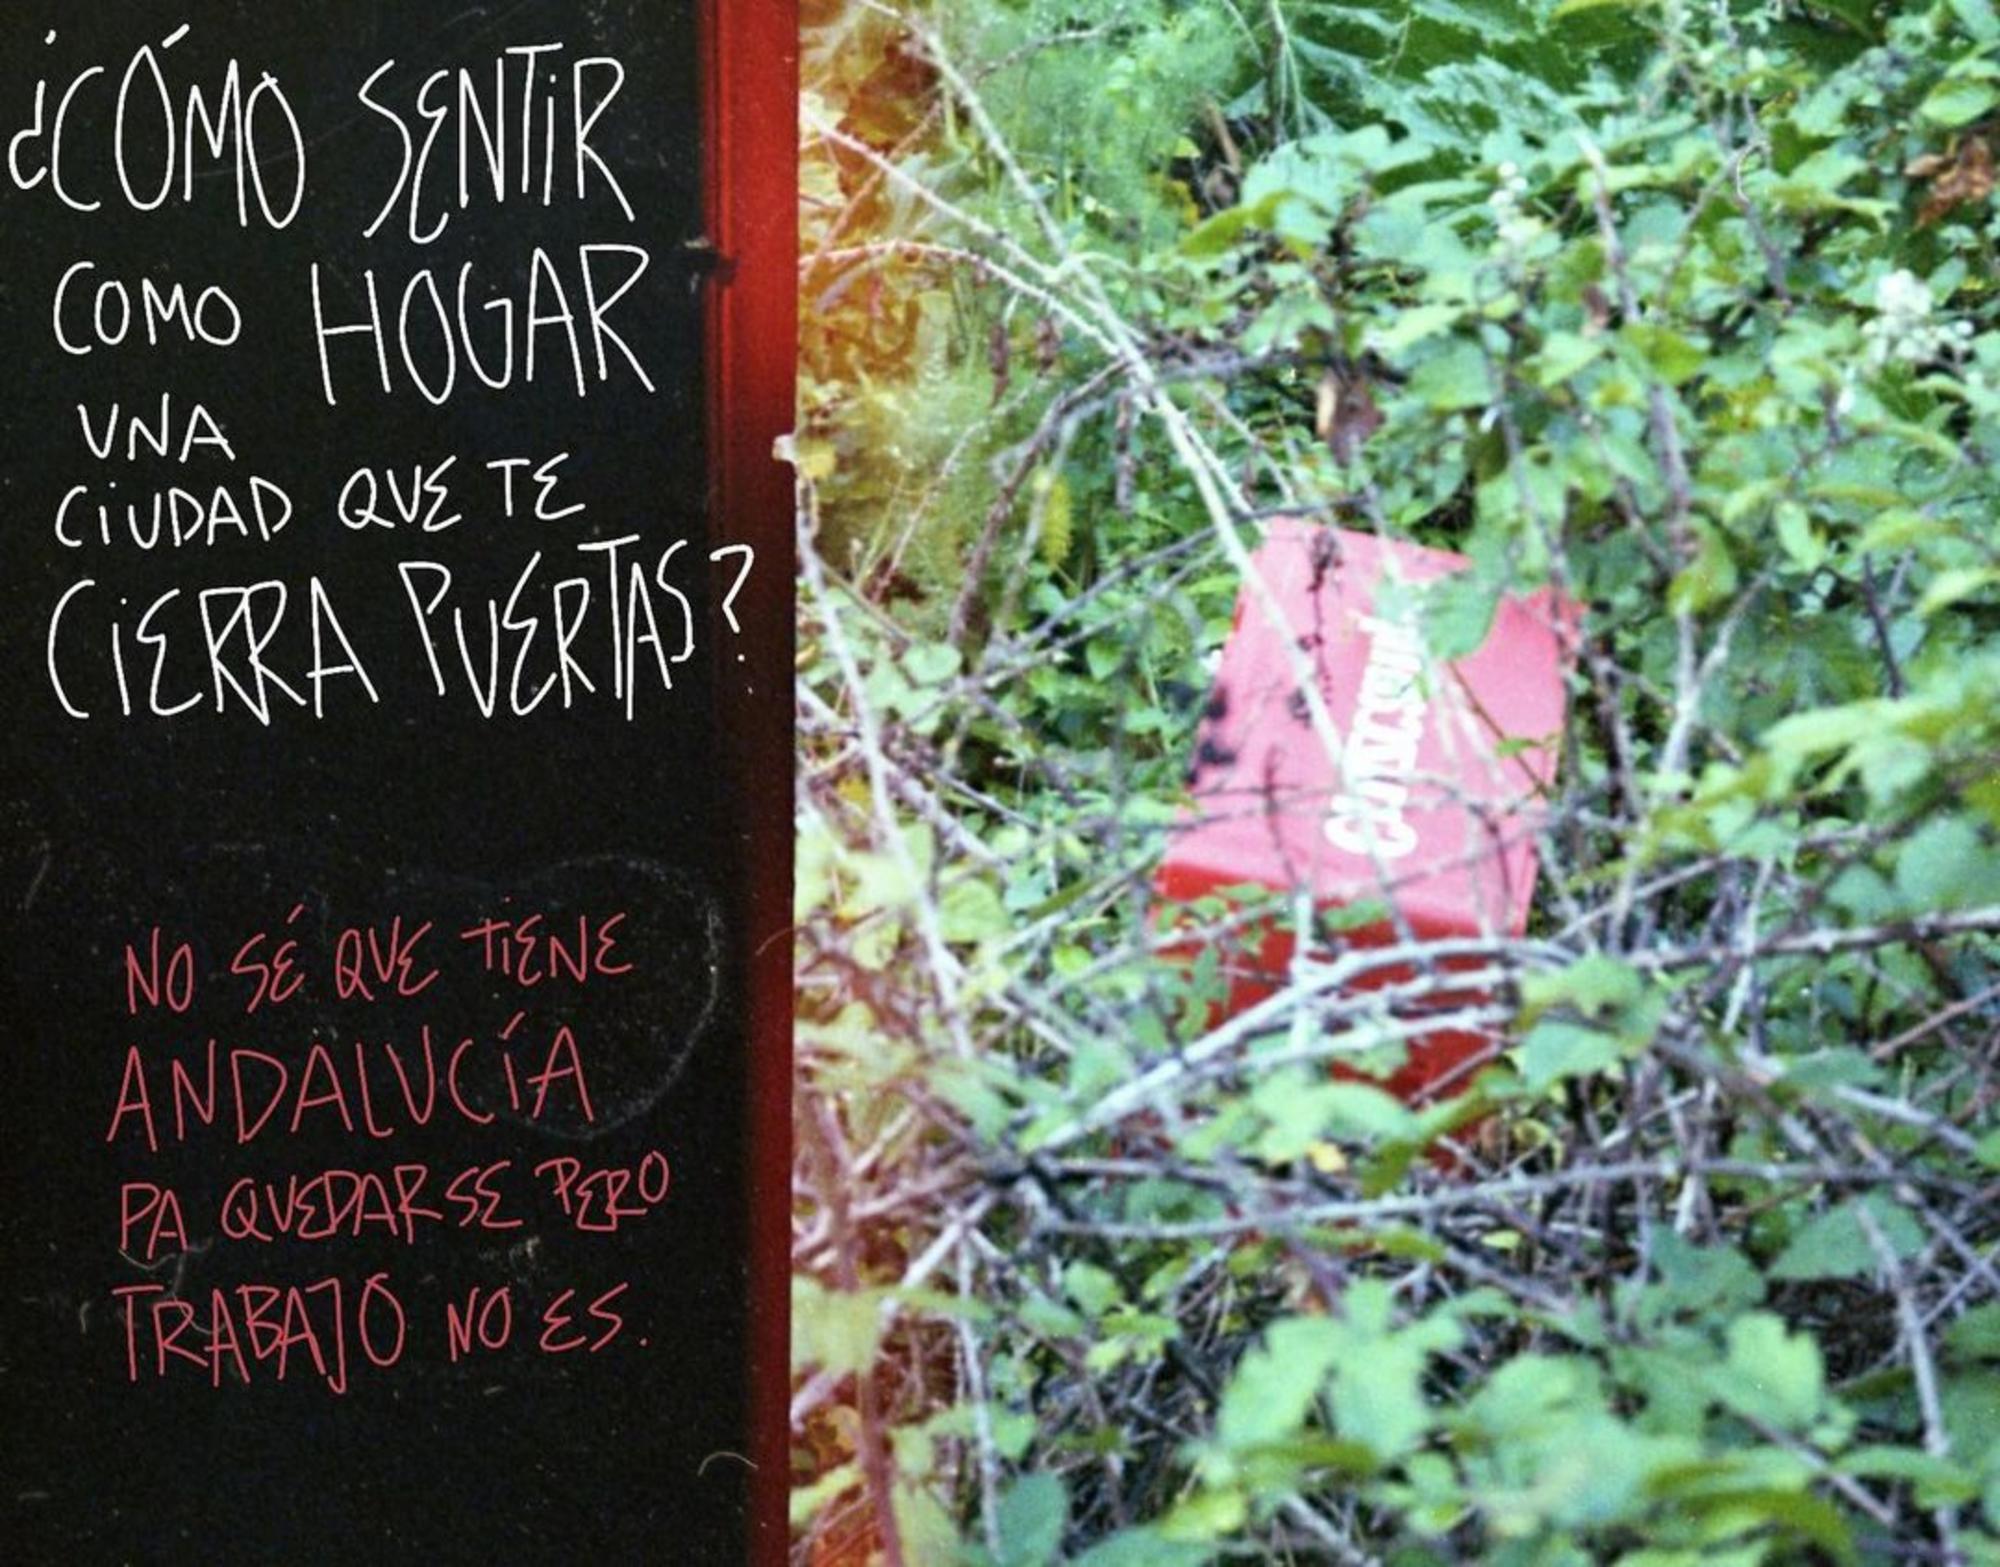 ¿CÓMO SENTIR
COMO HOGAR
UNA
CIUDAD QUE TE
CIERRA PUERTAS?
NO SÉ QUE TIENE
ANDALUCÍA
PA QUEDARSE PERO
TRABAJO NO ES.